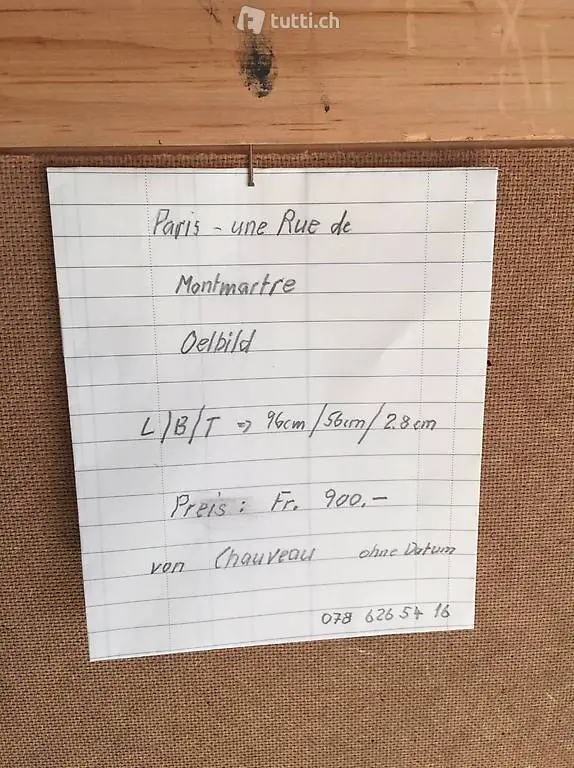 tutti.ch
Paris - une Rue de
Montmartre
Oelbild
L/B/T => 96cm/56cm/2.8cm
Preis: Fr. 900.-
von Chauveau ohne Datum
078 626 54 16